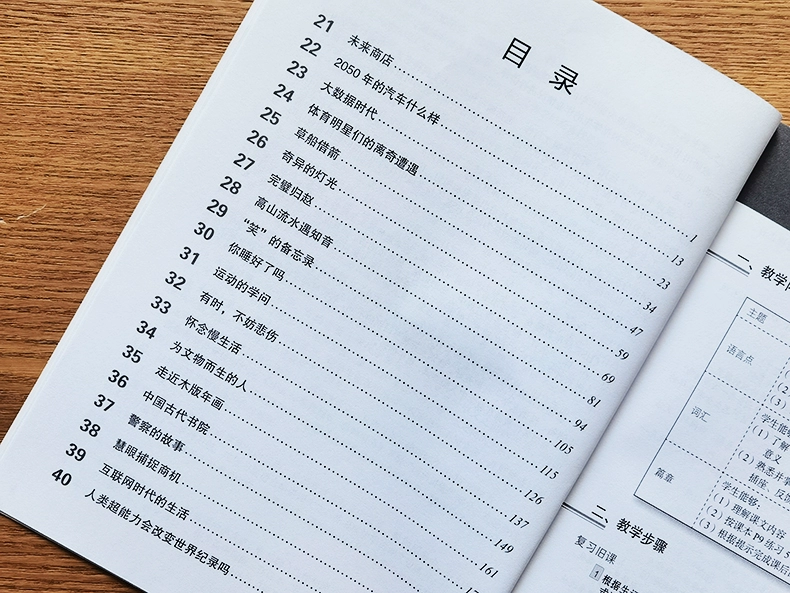 目录
21 未来商店 1
22 2050 年的汽车什么样 13
23 大数据时代 23
24 体育明星们的离奇遭遇 34
25 草船借箭 47
26 奇异的灯光 59
27 完璧归赵 69
28 高山流水遇知音 81
29 “笑”的备忘录 94
30 你睡好了吗 105
31 运动的学问 115
32 有时，不妨悲伤 126
33 怀念慢生活 137
34 为文物而生的人 149
35 走近木版年画 161
36 中国古代书院
37 警察的故事
38 慧眼捕捉商机
39 互联网时代的生活
40 人类超能力会改变世界纪录吗
一、教学
主题
语言点
（2）
（3）
词汇
学生能够
（1）了解
意义
（2）熟悉并
插座、反
篇章
学生能够：
（1）理解课文内容
（2）按课本 P9 练习 5
（3）根据提示完成课后
二、教学步骤
复习旧课
1 根据生